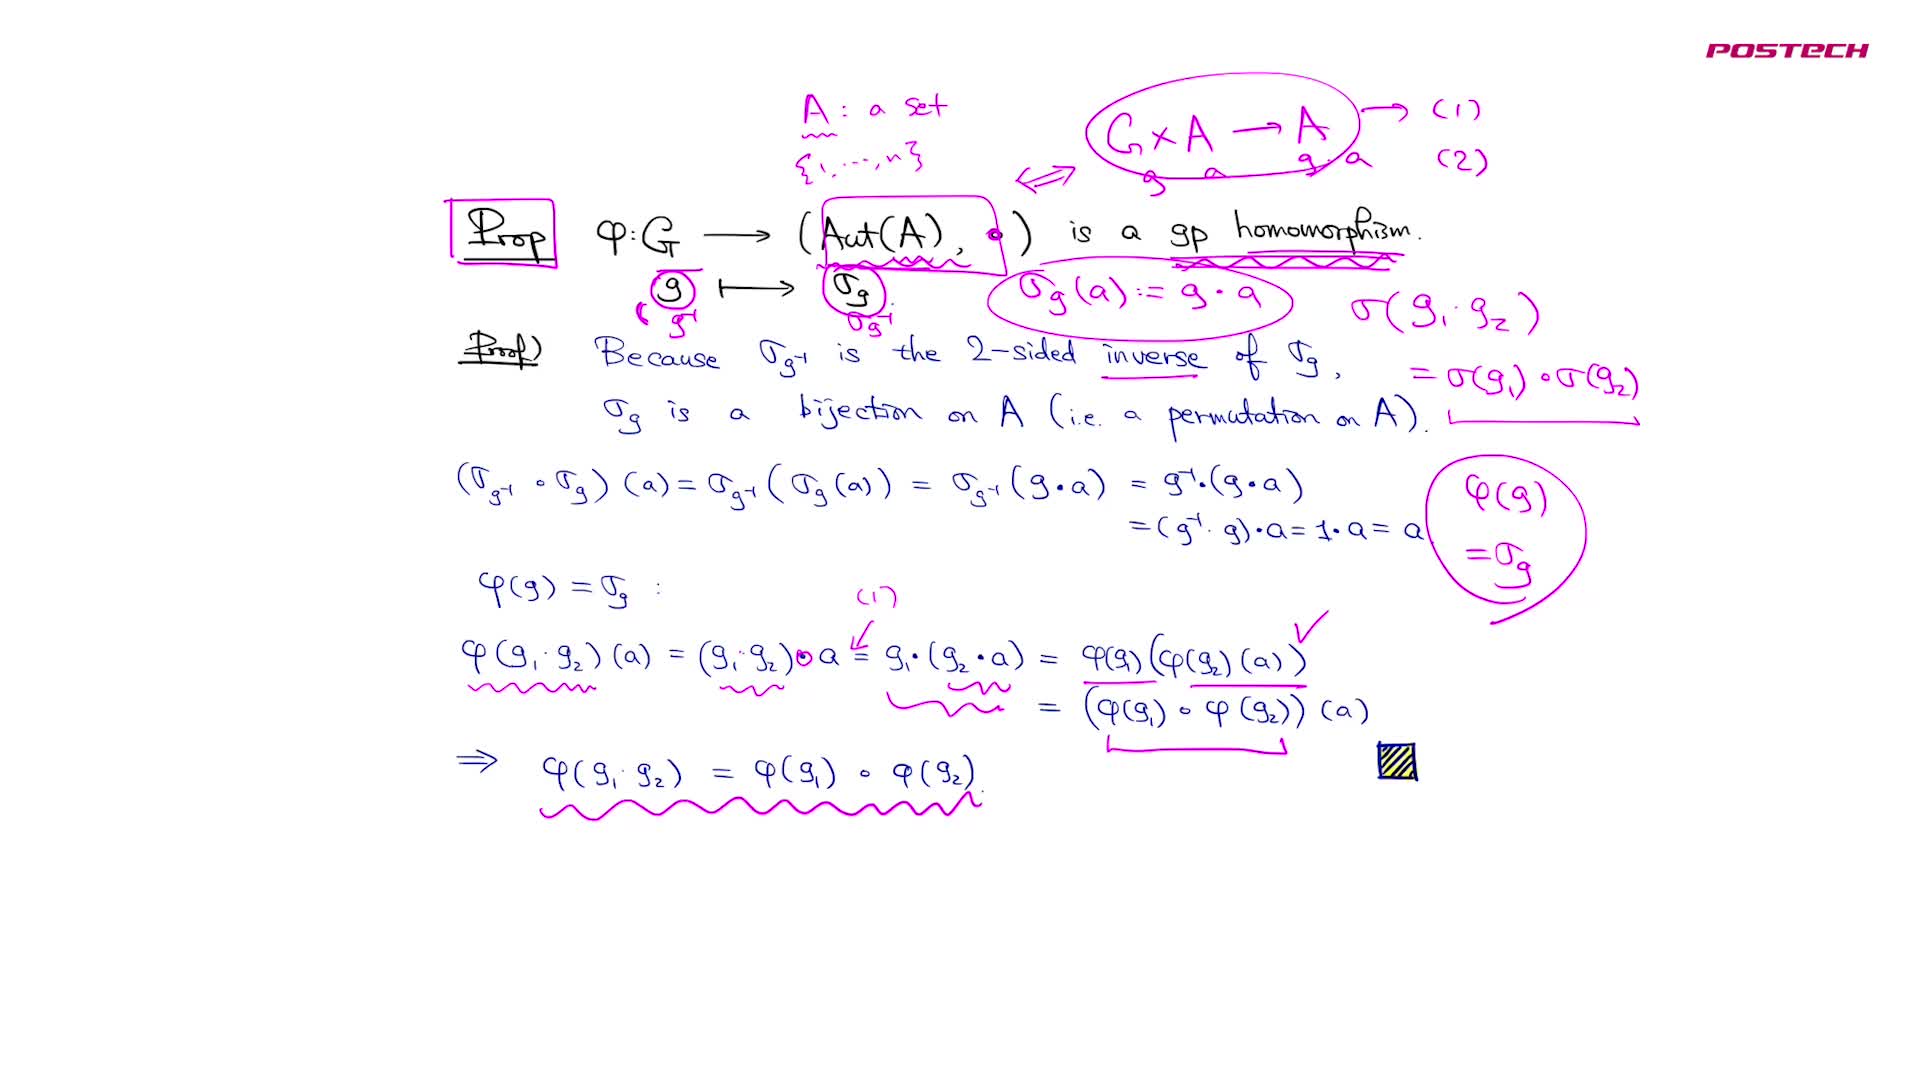 POSTECH
A : a set
{1, ..., n}
G × A → A → (1)
g a g·a (2)
⇔
Prop φ : G → (Aut(A), ∘) is a gp homomorphism.
g ↦ σ_g σ_g(a) := g·a σ(g₁·g₂)
g⁻¹ σ_g⁻¹
Proof) Because σ_g⁻¹ is the 2-sided inverse of σ_g, = σ(g₁)∘σ(g₂)
σ_g is a bijection on A (i.e. a permutation on A).
(σ_g⁻¹ ∘ σ_g)(a) = σ_g⁻¹(σ_g(a)) = σ_g⁻¹(g·a) = g⁻¹·(g·a) φ(g)
= (g⁻¹·g)·a = 1·a = a = σ_g
φ(g) = σ_g :
(1)
φ(g₁·g₂)(a) = (g₁·g₂)·a = g₁·(g₂·a) = φ(g₁)(φ(g₂)(a)) ✓
= (φ(g₁)∘φ(g₂))(a)
⇒ φ(g₁·g₂) = φ(g₁) ∘ φ(g₂).